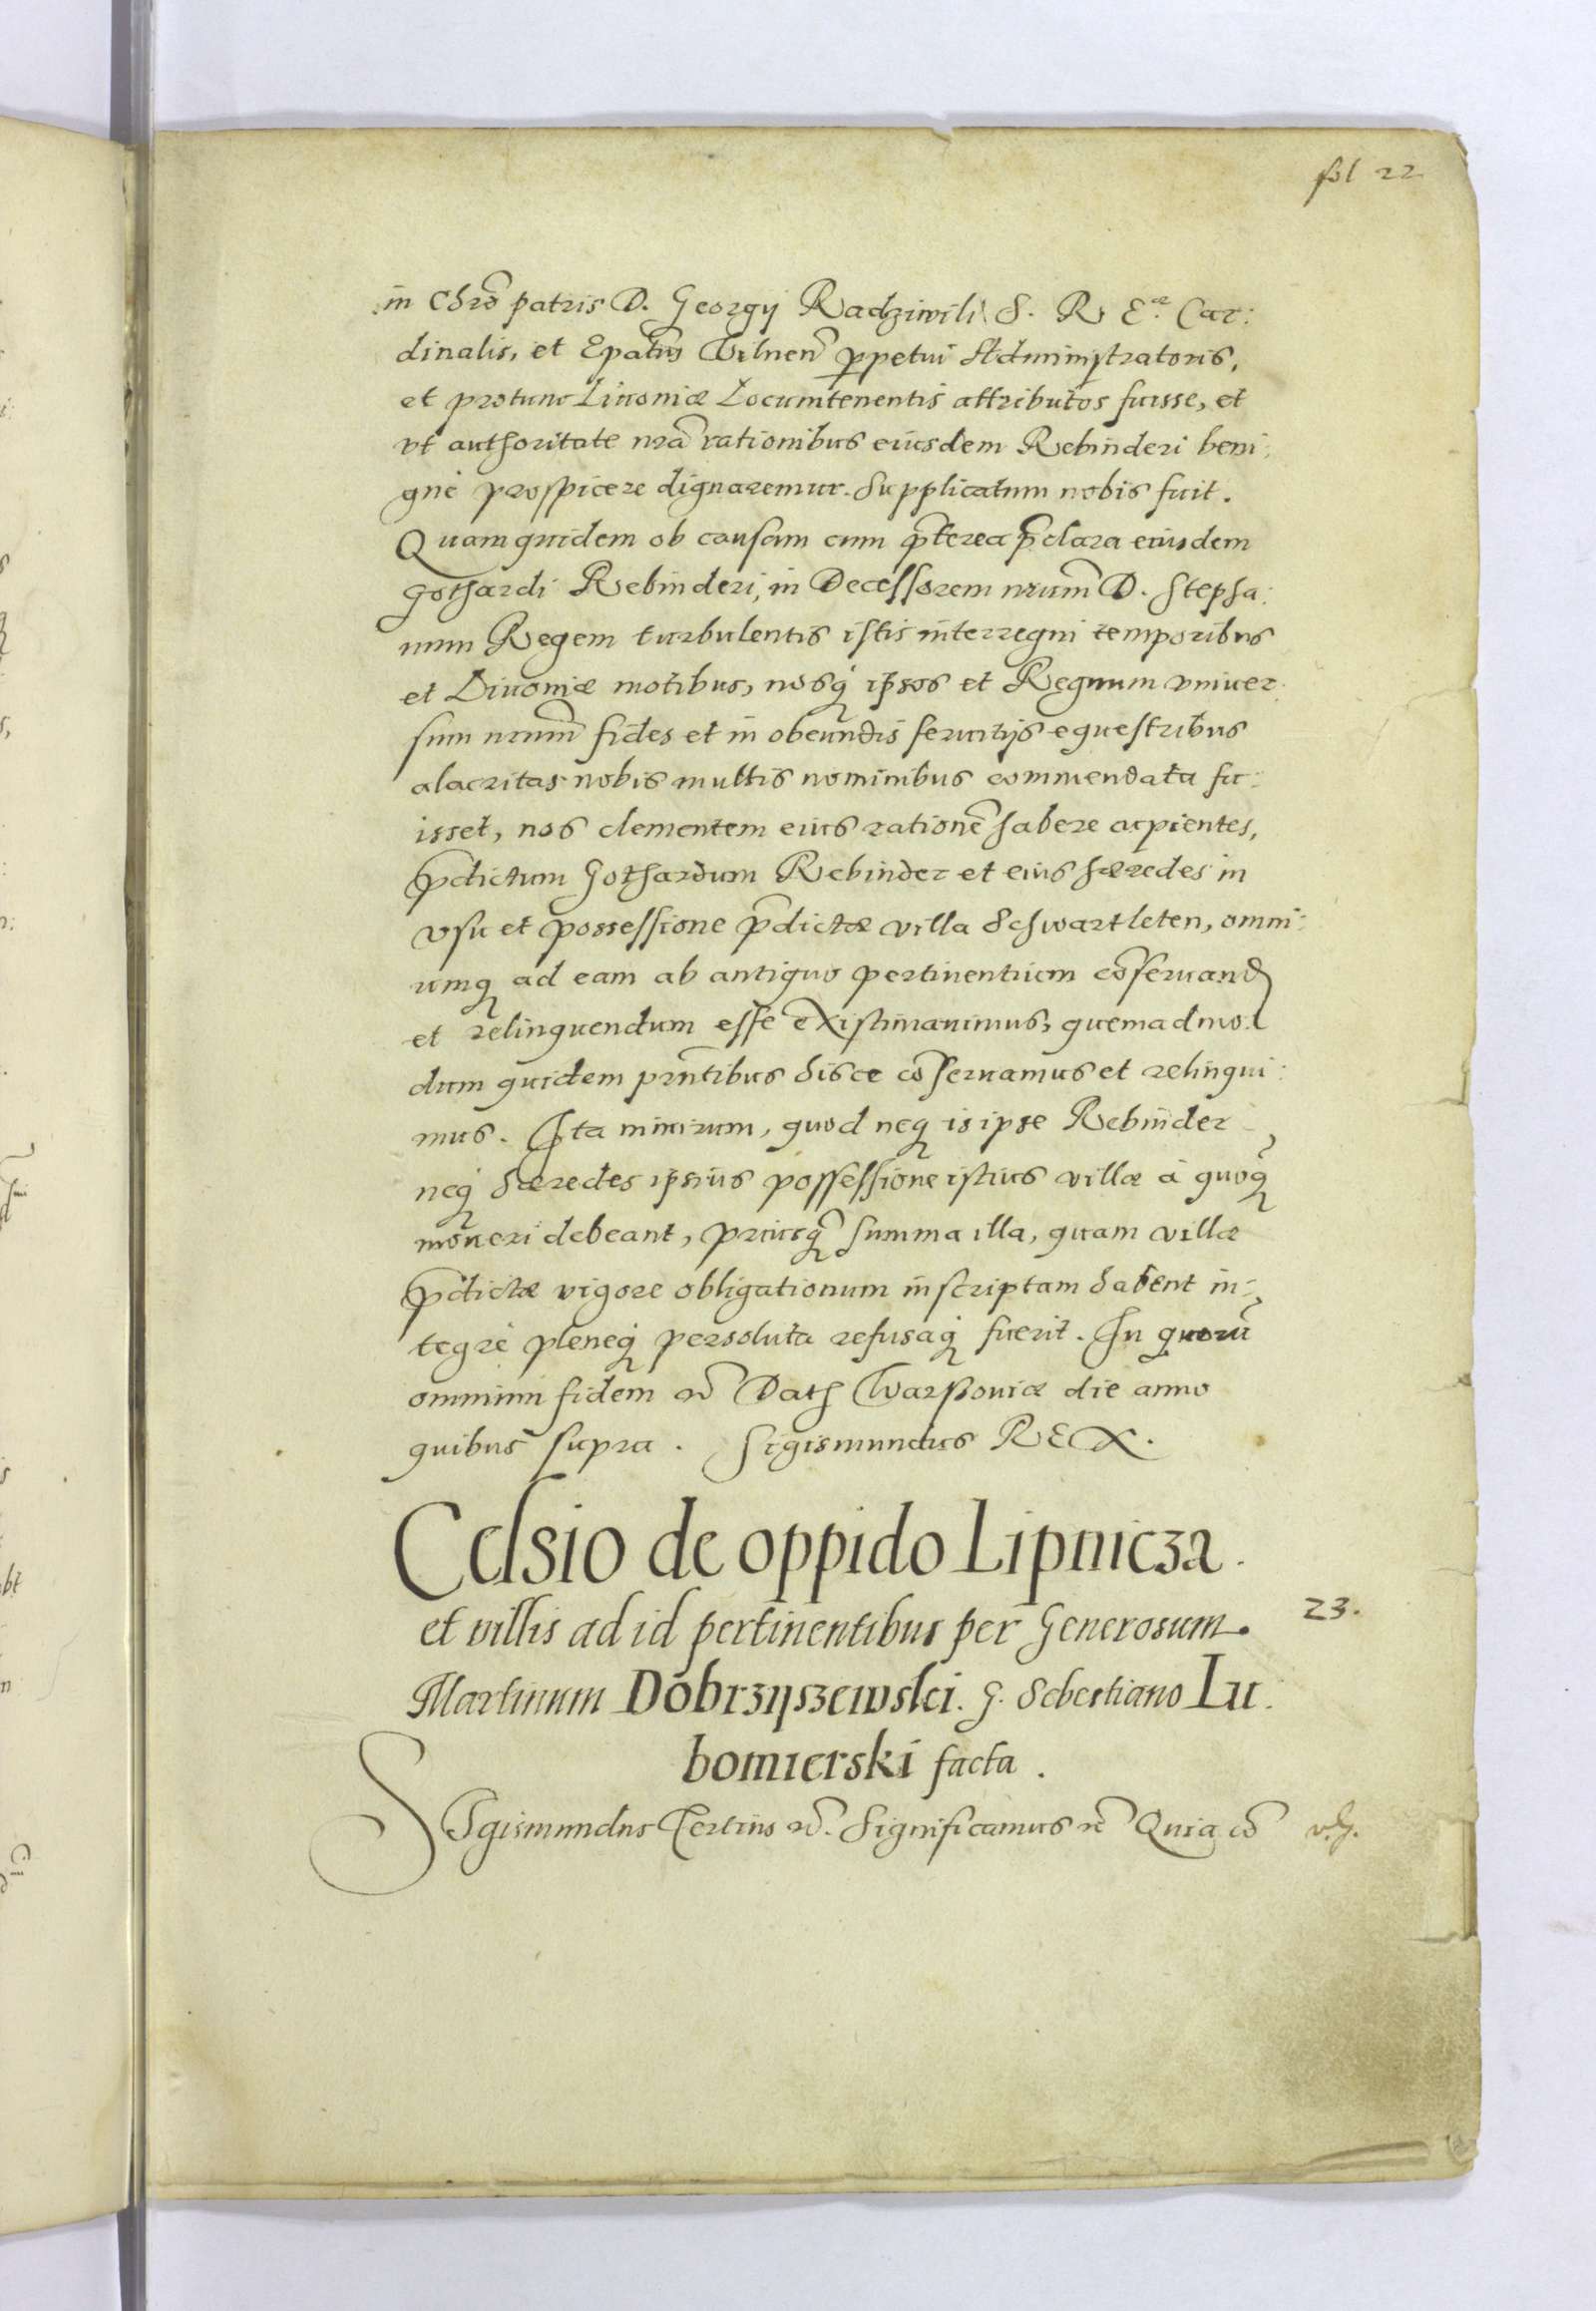 fol 22
in Chrõ patris D. Georgij Radziwili S. R. E.æ Car:
dinalis, et Epatus Vilnen̄ ꝑpetui Administratoris,
et protunc Liuoniæ Locumtenentis attributos fuisse, et
vt authoritate nrã rationibus eiusdem Rebinderi beni:
gnè prospicere dignaremur. Supplicatum nobis fuit.
Quamquidem ob causam cum p̃terea p̃clara eiusdem
Gothardi Rebinderi, in Decessorem nrum̃ D. Stepha:
num Regem turbulentis istis interregni temporibus
et Liuoniæ motibus, nosq́ ipsos et Regnum vniuer:
sum nrum̃ fides et in obeundis seruitijs equestribus
alacritas nobis multis nominibus commendata fu:
isset, nos clementem eius rationẽ habere cupientes,
p̃dictum Gothardum Rebinder et eius hæredes in
vsu et possessione p̃dictæ villa Schwartleten, omni:
umq̨ ad eam ab antiquo pertinentium cõseruand
et relinquendum esse existimauimus, quemadmo:
dum quidem prñtibus hisce cõseruamus et relinqui:
mus. Ita nimirum, quod neq̨ is ipse Rebinder
neq́ hæredes ipsius possessione istius villæ à quoq̃
moueri debeant, priusq̃ summa illa, quam villæ
p̃dictæ vigore obligationum inscriptam habent in:
tegrè pleneq́ persoluta refusaq́ fuerit. In quorũ
omnium fidem etc̃ Dath Warssouiæ die anno
quibus supra. Sigismundus REX.
Celsio de oppido Lipnicza.
et villis ad id pertinentibus per Generosum.
23.
Martinum Dobrzyszewski. G. Sebestiano Lu:
bomierski facta.
SIgismundus Tertius etc̃. Significamus etc̃ Quia cõ